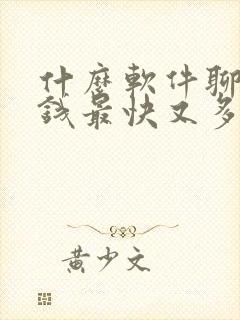 什麼軟件聊
錢最快又多
黃少文